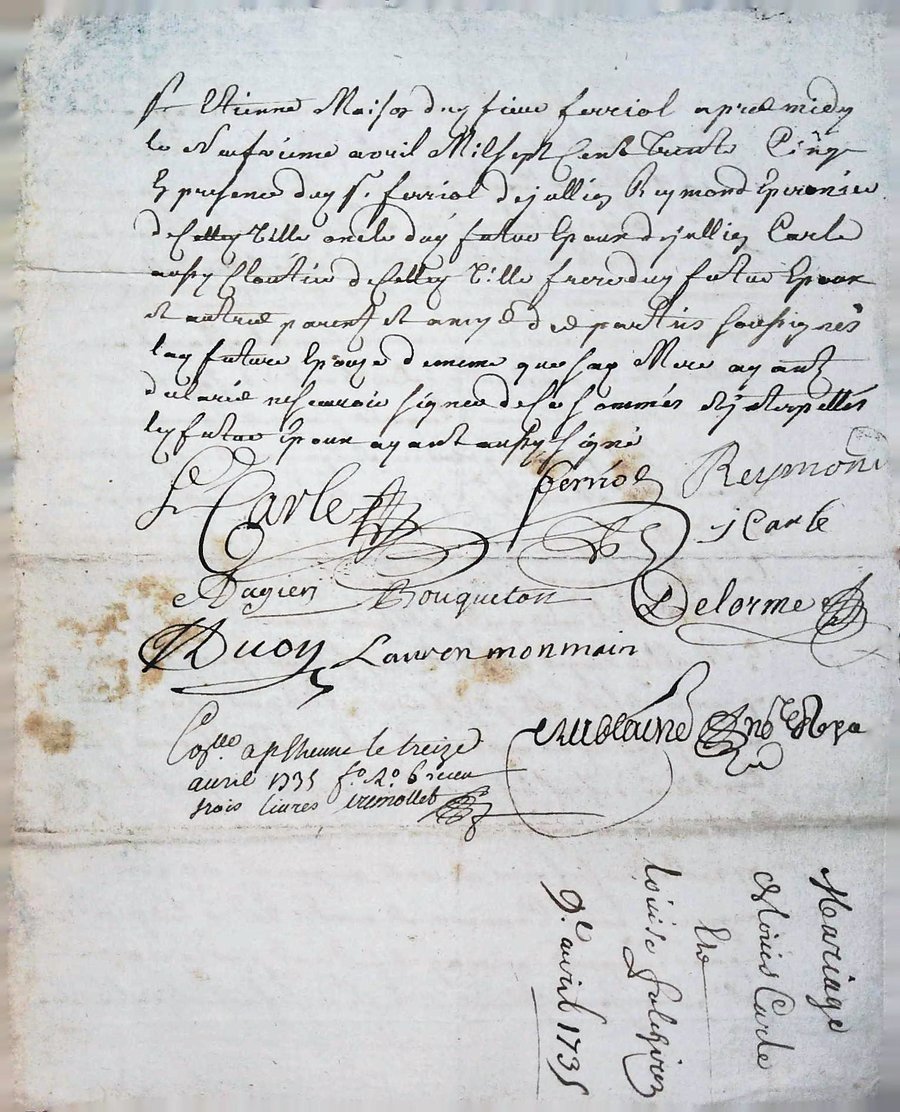 St Etienne Maison duy sieur ferriol apres midy
le Neufvieme avril Mil sept Cent Trente Cinq
En presence duy Sr. ferriol de jullien Reymond Eperonier
de cettey Ville oncle duy futur Epoux de jullien Carle
aussy Cloutier de cettey Ville frere duy futur Epoux
et autres parents et amys des parties soussignés
lay future Epouze de meme que say Mere ayant
declarés ne scavoir signer de ce sommés et interpellés
ley futur Epoux ayant aussy signé
L Carle ferriol Reymond
j Carle
Bouqueton Delorme
Lauren monmain
Collé a St Etienne le treize
avril 1735 fo. 20. recu
trois livres tremollet
Mariage
de Louis Carle
Et
Louise
9e avril 1735